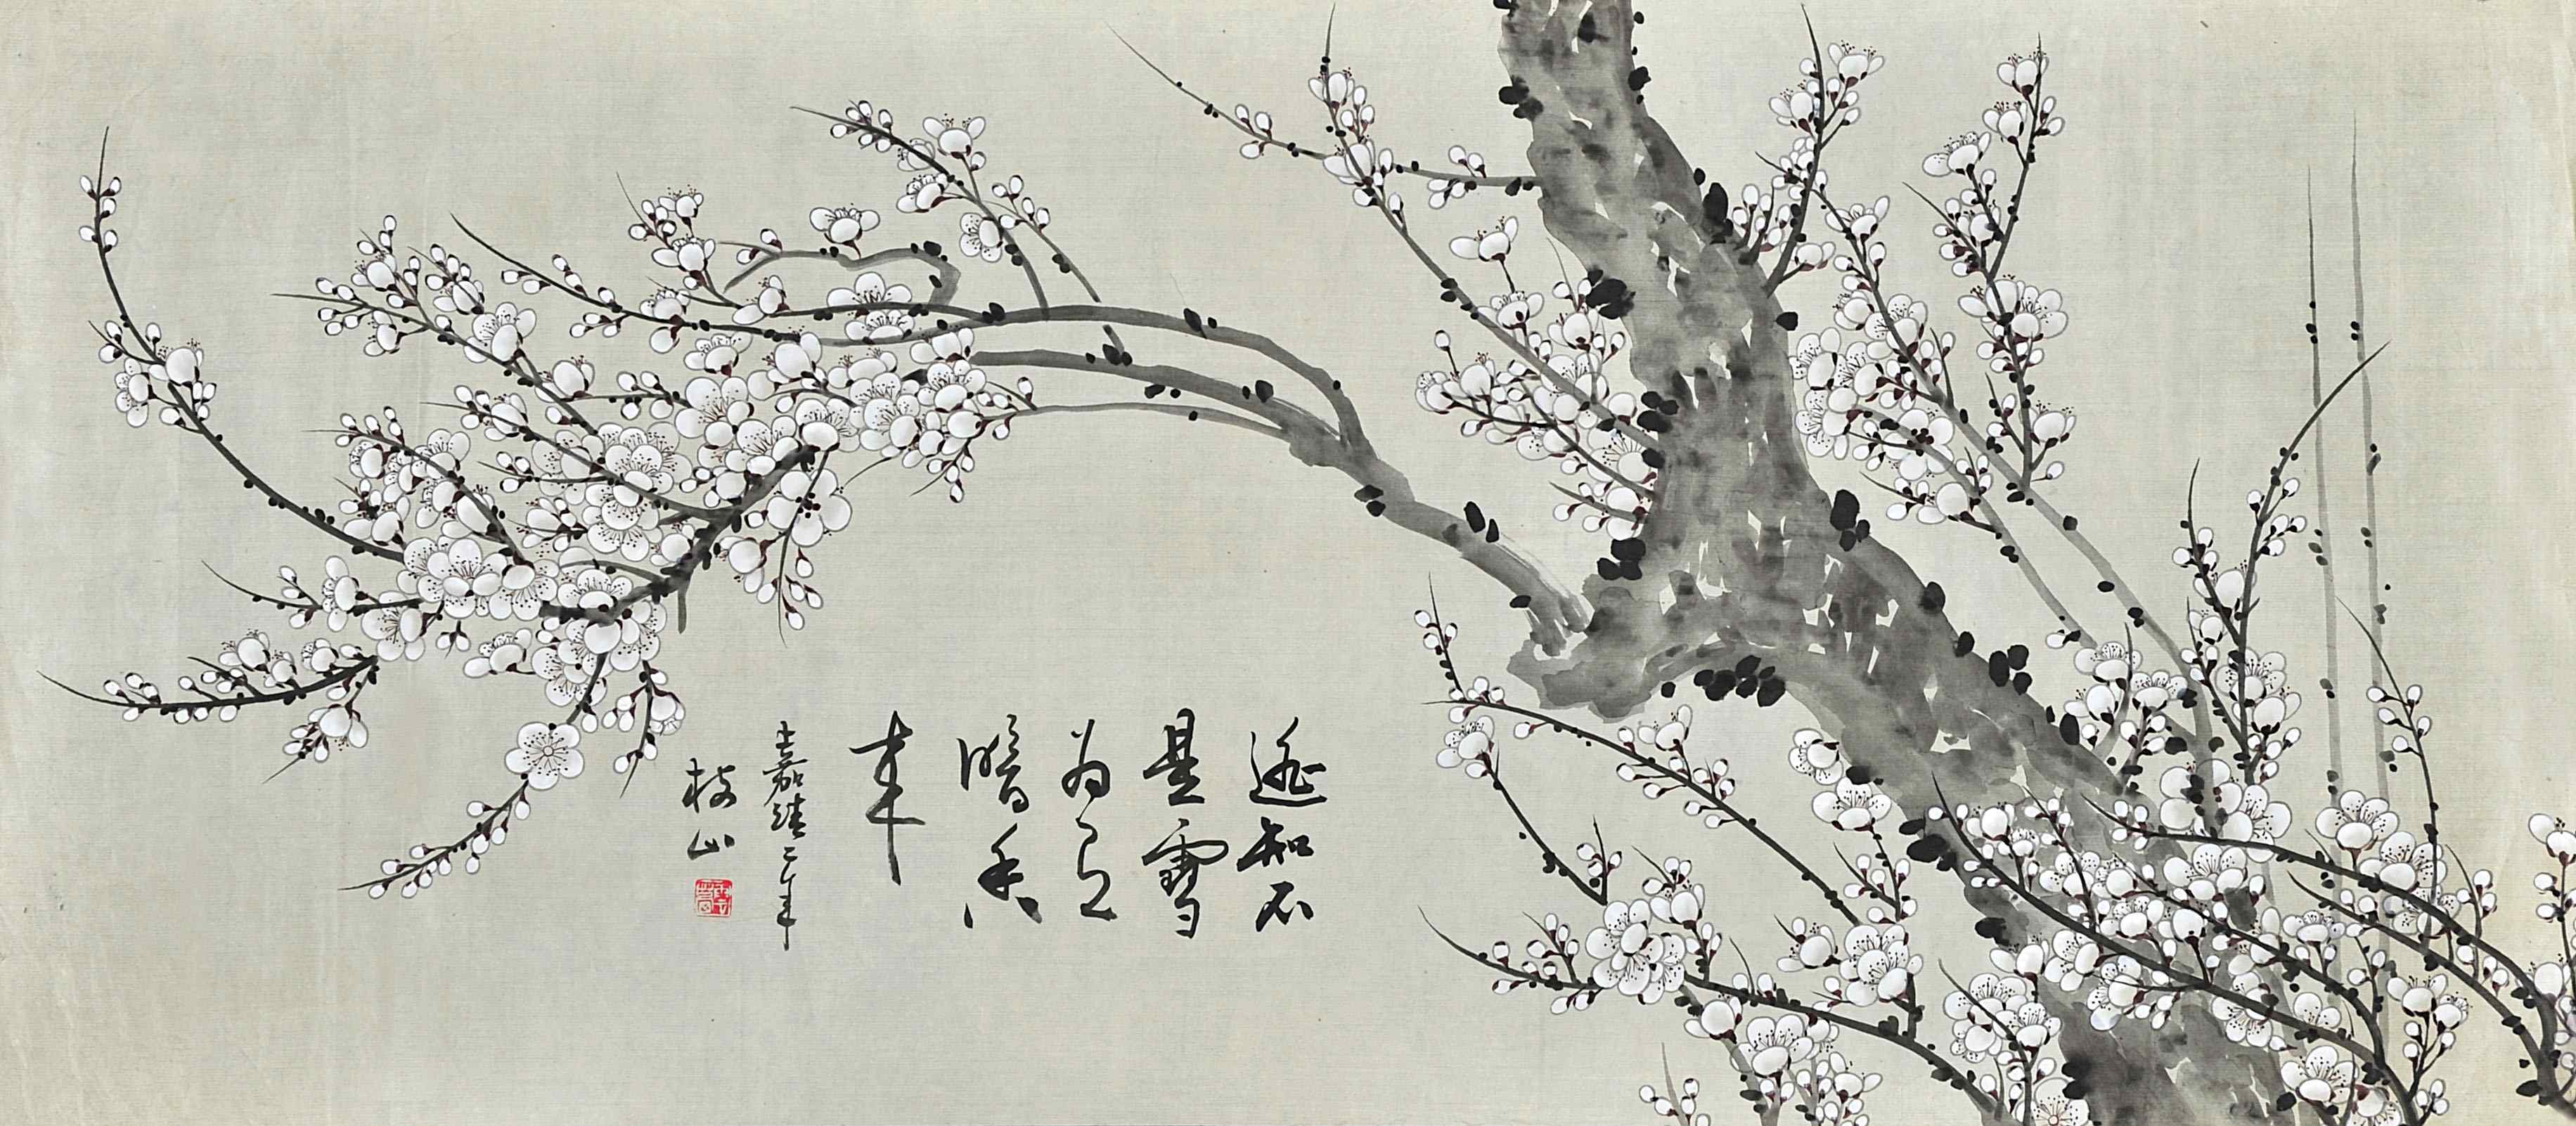 遥知不
是雪
為有
暗香
来
嘉靖二年
枝山